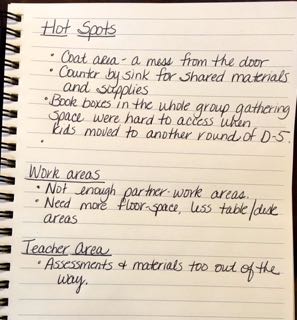 Hot Spots
• Coat area - a mess from the door
• Counter by sink for shared materials
and supplies
• Book boxes in the whole group gathering
space were hard to access when
kids moved to another round of D-5.
•
Work areas
• Not enough partner work areas.
• Need more floor space, less table/desk
areas
Teacher Area
• Assessments & materials too out of the
way.